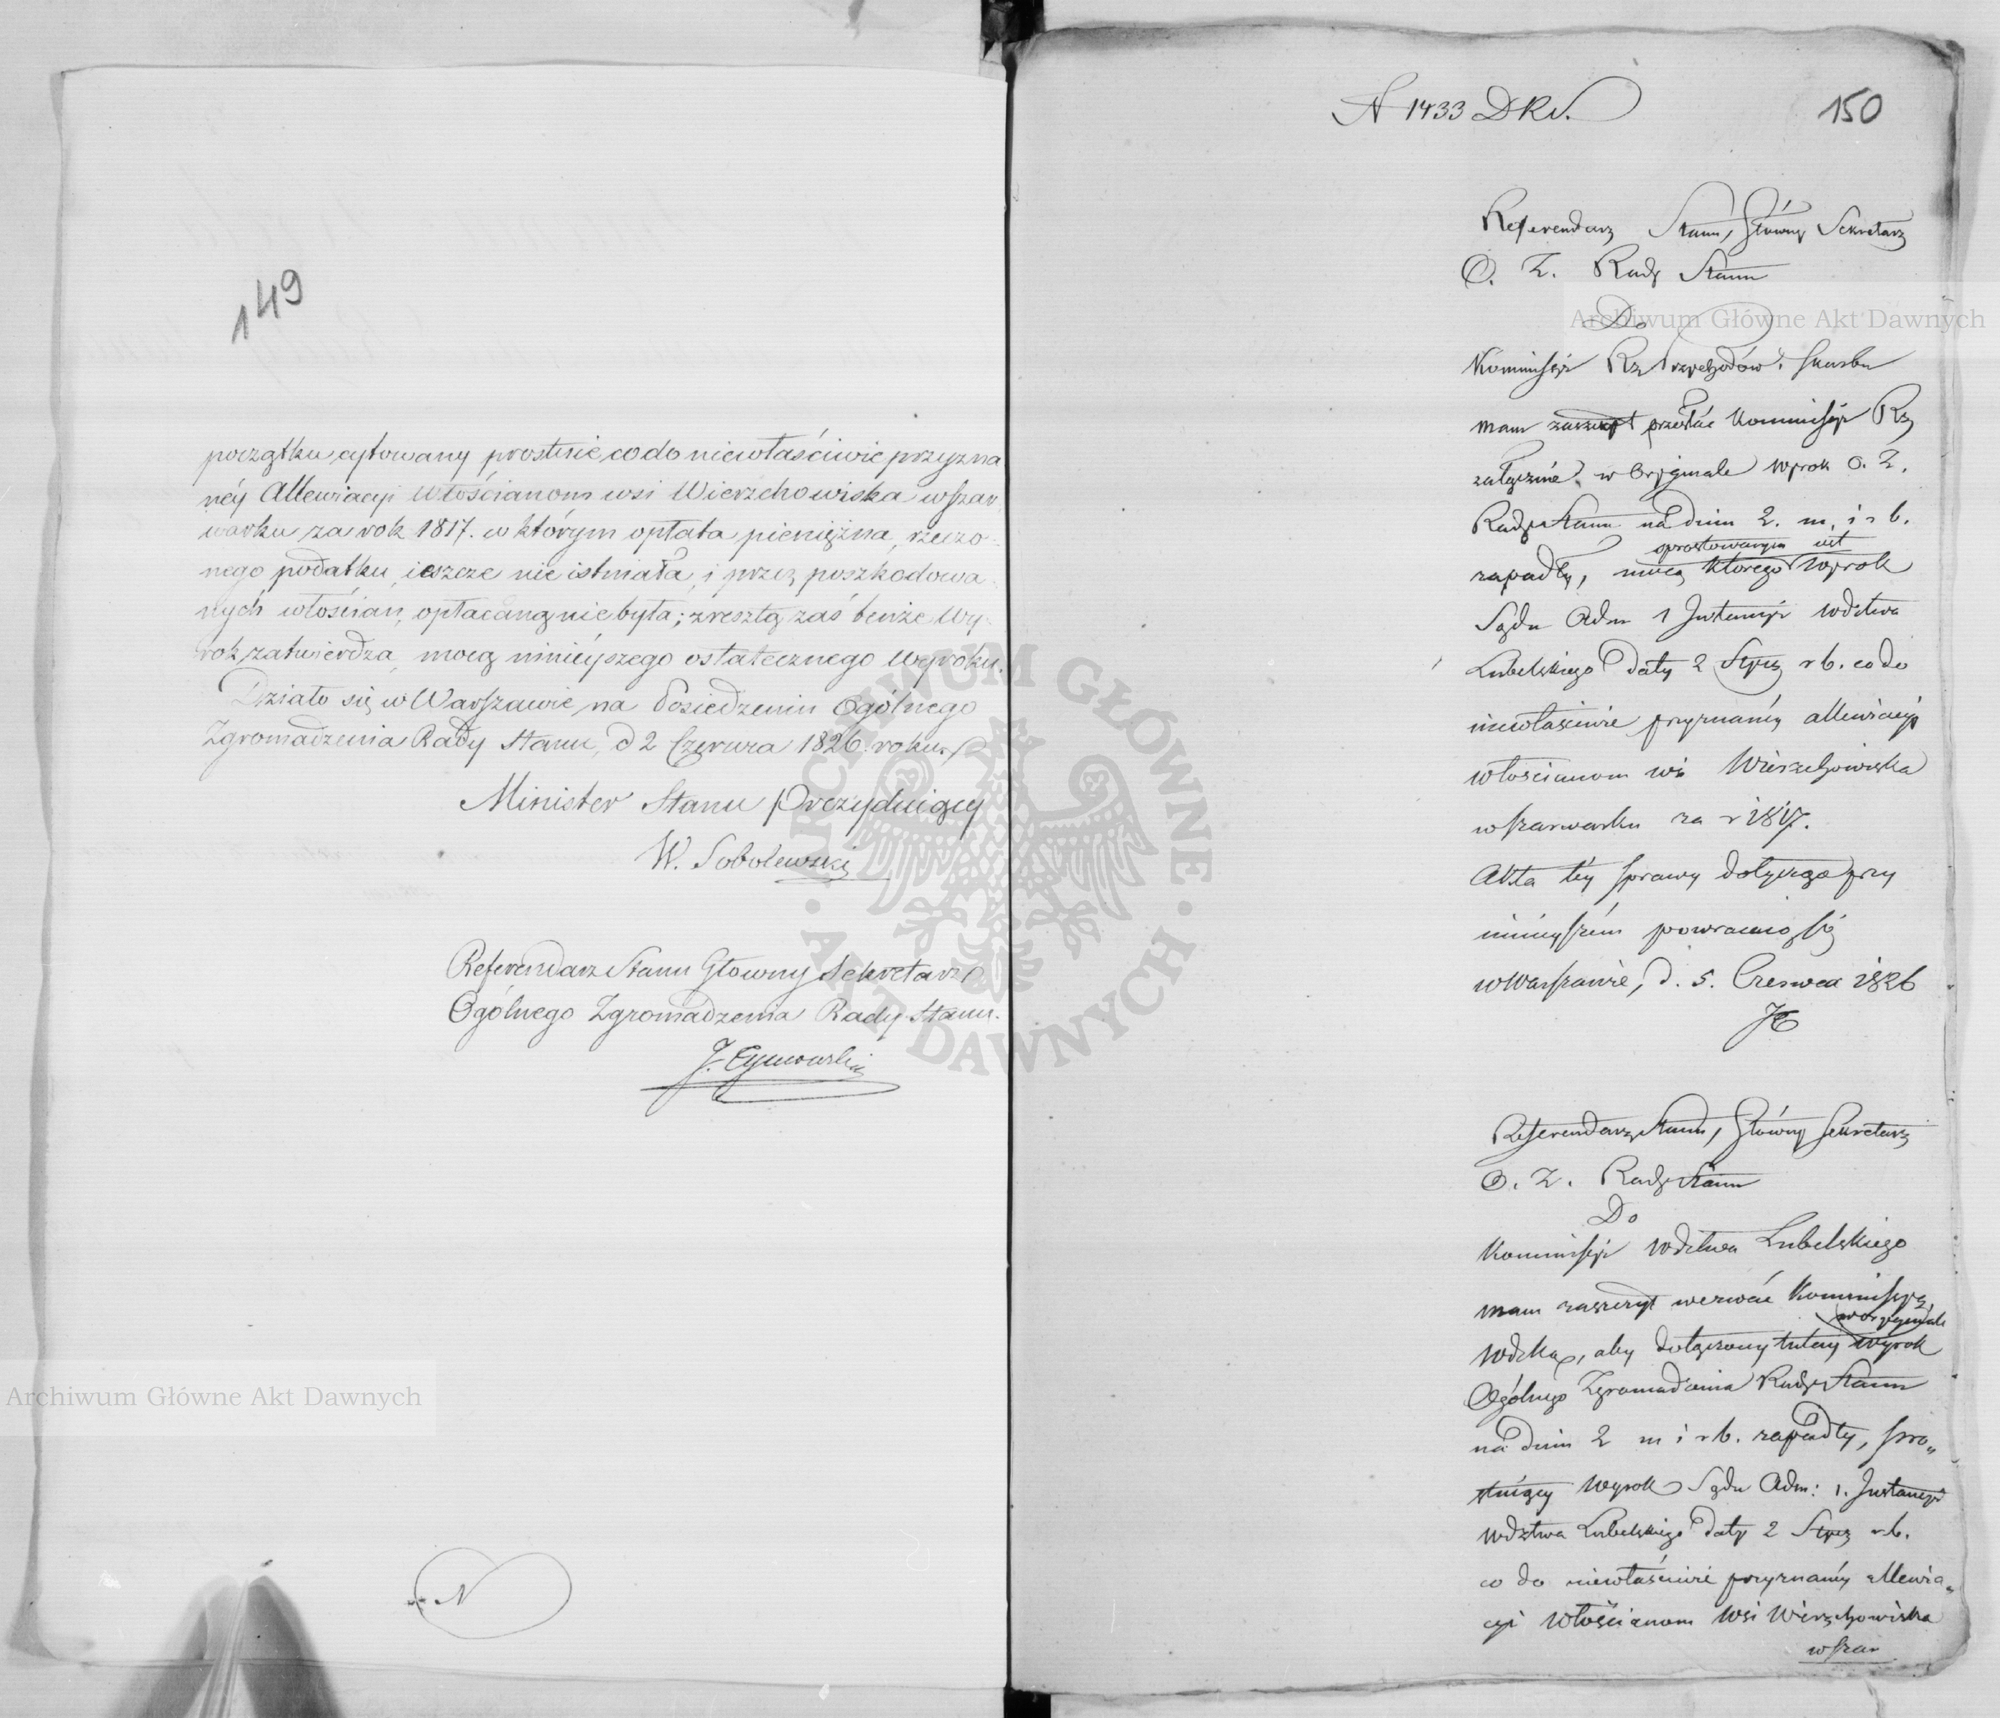 149
początku cytowany prostuie co do niewłaściwie przyzna
néy Allewiacyi Włościanom wsi Wierzchowiska wszar,
warku za rok 1817. w którym opłata pieniężna, rzeczo-
nego podatku ieszcze nie istniała, i przez poszkodowa-
nych włościan, opłacaną nie była; zresztą zaś tenże Wy-
rok zatwierdza, mocą ninieyszego ostatecznego Wyroku.
Działo się w Warszawie na Posiedzeniu Ogólnego
Zgromadzenia Rady Stanu, d 2 Czerwca 1826 roku.
Minister Stanu Prezyduiący
W. Sobolewski
Referendarz Stanu Główny Sekretarz
Ogólnego Zgromadzenia Rady Stanu.
J. Tymowski
N
N 1433 DRS.
150
Referendarz Stanu, Główny Sekretarz
O. Z. Rady Stanu
Do
Kommissyi Rz Przychodów i Skarbu
mam zaszczyt przesłać Kommissyi Rz
załączone w Oryginale Wyrok O. Z.
Rady Stanu na dniu 2. m. i r b.
sprostowanym
zapadły, mocą którego Wyrok
Sądu Adm 1 Instancyi Wdztwa
Lubelskiego daty 2 Stycz r b. co do
niewłaściwie przyznanéy allewiacyi
włościanom wsi Wierzchowiska
wszarwarku za r 1817.
Akta téy sprawy dotyczące przy
ninieyszém powracaią się
w Warszawie, d. 5. Czerwca 1826
JT
Referendarz Stanu, Główny Sekretarz
O. Z. Rady Stanu
Do
Kommissyi Wdztwa Lubelskiego
mam zaszczyt wezwać Kommissyą
w oryginale
Wdzką, aby dołączony tutay Wyrok
Ogólnego Zgromadzenia Rady Stanu
na dniu 2 m i r b. zapadły, pro„
stuiący Wyrok Sądu Adm: 1. Instancyi
Wdztwa Lubelskiego daty 2 Stycz r b.
co do niewłaściwie przyznanéy allewia„
cyi Włościanom Wsi Wierzchowiska
wszar
Archiwum Główne Akt Dawnych
Archiwum Główne Akt Dawnych
ARCHIWUM GŁÓWNE · AKT DAWNYCH ·